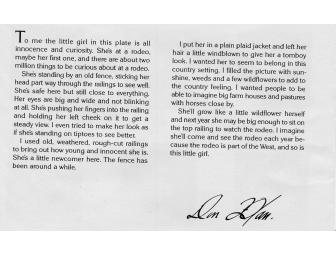 To me the little girl in this plate is all
innocence and curiosity. She's at a rodeo,
maybe her first one, and there are about two
million things to be curious about at a rodeo.
She's standing by an old fence, sticking her
head part way through the railings to see well.
She's safe here but still close to everything.
Her eyes are big and wide and not blinking
at all. She's pushing her fingers into the railing
and holding her left cheek on it to get a
steady view. I even tried to make her look as
if she's standing on tiptoes to see better.
I used old, weathered, rough-cut railings
to bring out how young and innocent she is.
She's a little newcomer here. The fence has
been around for a while.
I put her in a plain plaid jacket and left her
hair a little windblown to give her a tomboy
look. I wanted her to seem to belong in this
country setting. I filled the picture with sun-
shine, weeds and a few wildflowers to add to
the country feeling. I wanted people to be
able to imagine big farm houses and pastures
with horses close by.
She'll grow like a little wildflower herself
and next year she may be big enough to sit on
the top railing to watch the rodeo. I imagine
she'll come and see the rodeo each year be-
cause the rodeo is part of the West, and so is
this little girl.